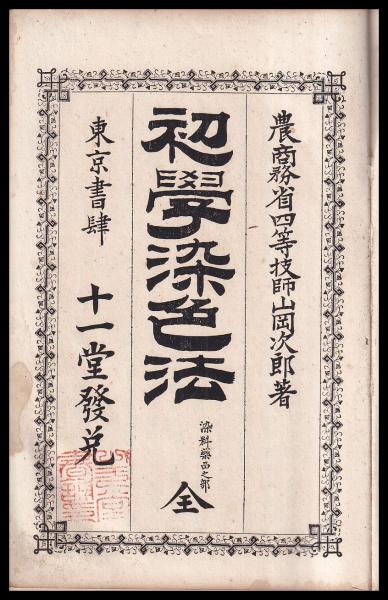 農商務省四等技師山岡次郎著
初學染色法
染料藥品之部
全
東京書肆
十一堂發兌